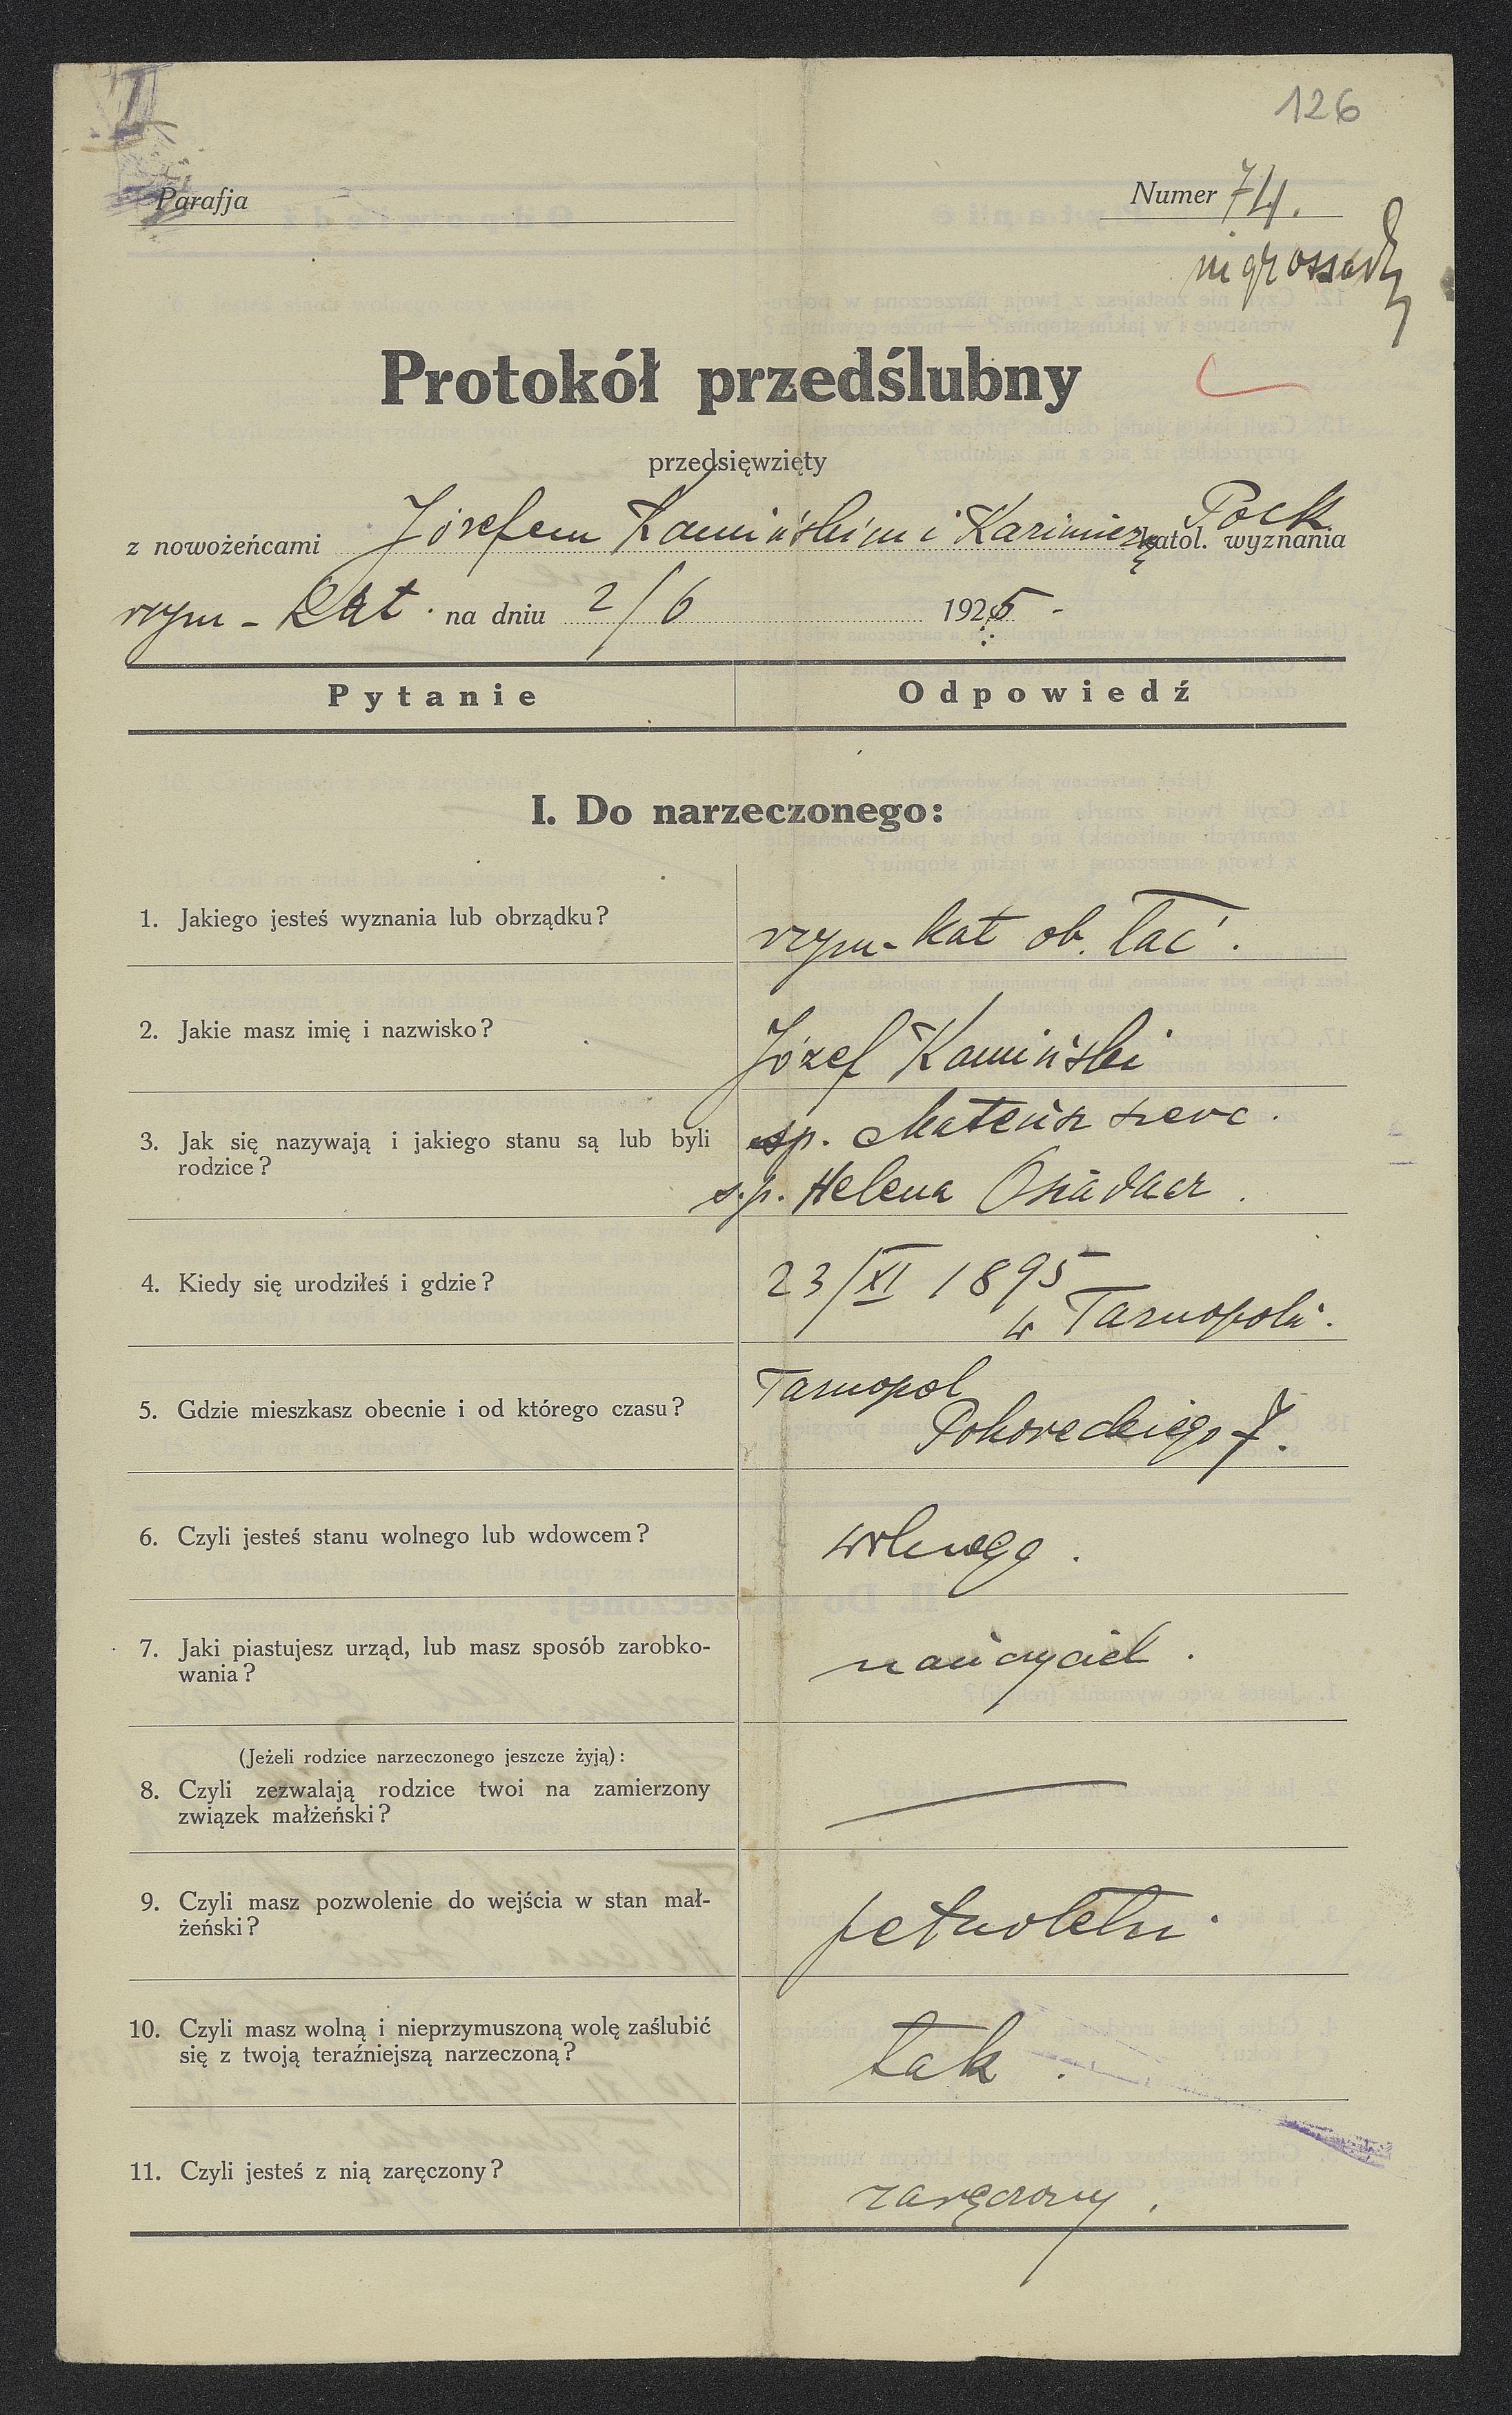 126
Parafja
Numer 74.
Protokół przedślubny
przedsięwzięty
Pock
z nowożeńcami Józefem Kamińskim i Kazimierą katol. wyznania
rzym-kat. na dniu 2/6 1925-
Pytanie Odpowiedź
I. Do narzeczonego:
1. Jakiego jesteś wyznania lub obrządku?
rzym-kat ob. łać.
2. Jakie masz imię i nazwisko?
Józef Kamiński
3. Jak się nazywają i jakiego stanu są lub byli
rodzice?
śp. Mateusz szewc.
ś.p. Helena
4. Kiedy się urodziłeś i gdzie?
23/XI 1895
w Tarnopolu.
5. Gdzie mieszkasz obecnie i od którego czasu?
Tarnopol
7.
6. Czyli jesteś stanu wolnego lub wdowcem?
wolnego.
7. Jaki piastujesz urząd, lub masz sposób zarobko-
wania?
nauczyciel.
(Jeżeli rodzice narzeczonego jeszcze żyją):
8. Czyli zezwalają rodzice twoi na zamierzony
związek małżeński?
9. Czyli masz pozwolenie do wejścia w stan mał-
żeński?
pełnoletni
10. Czyli masz wolną i nieprzymuszoną wolę zaślubić
się z twoją teraźniejszą narzeczoną?
tak.
11. Czyli jesteś z nią zaręczony?
zaręczony.